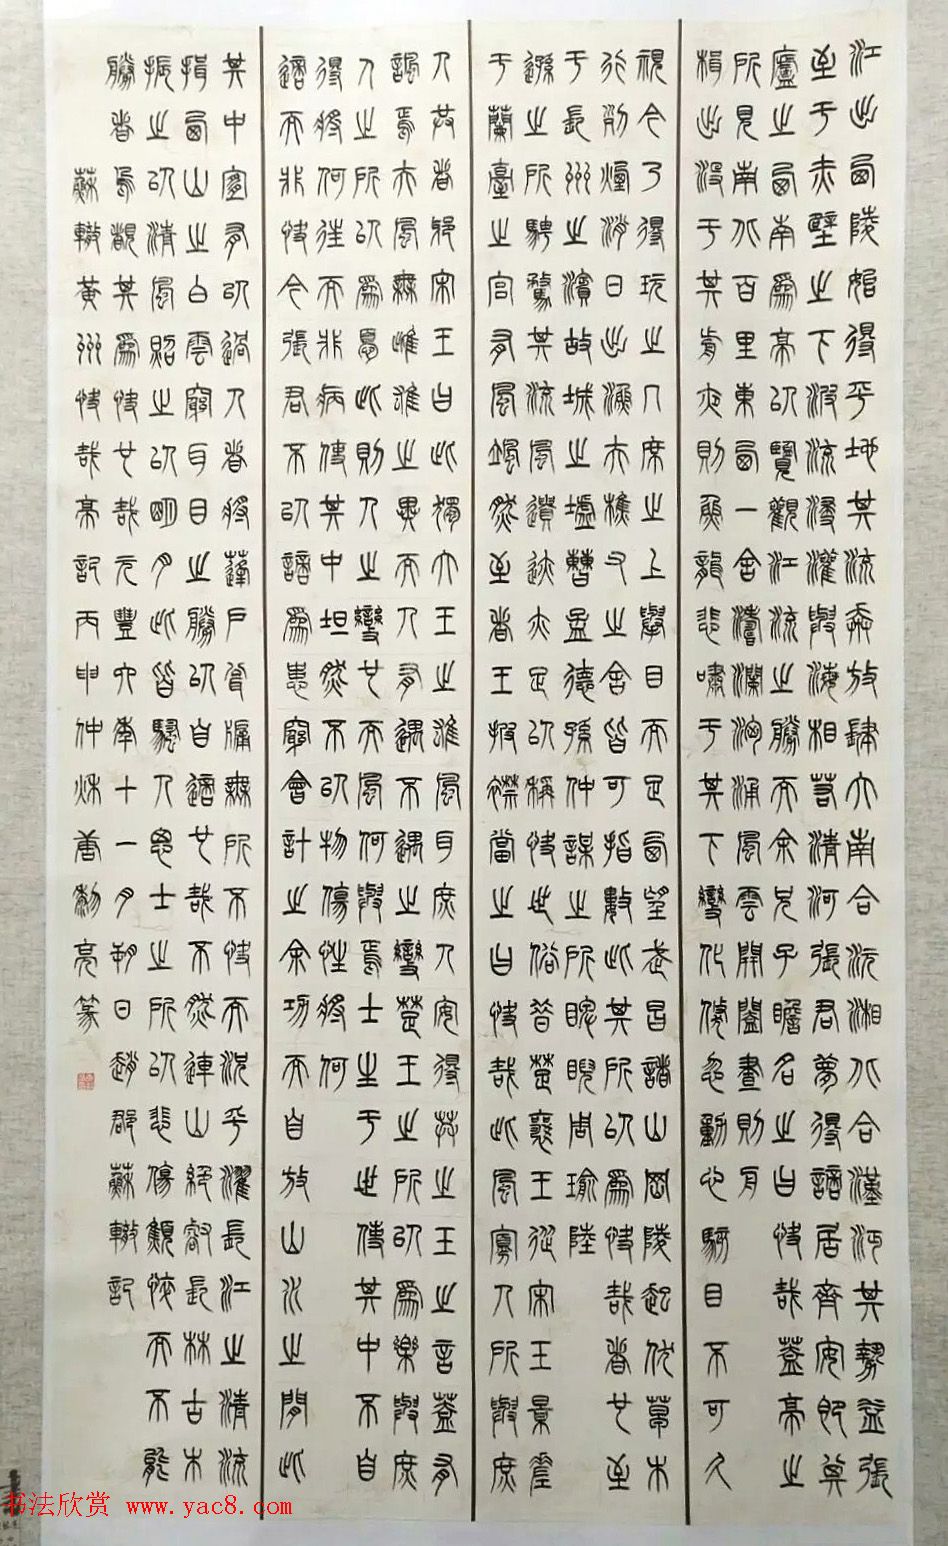 江出西陵始得平地其流奔放肆大南合沅湘北合漢沔其勢益張
至于赤壁之下波流浸灌與海相若清河張君夢得謫居齊安即其
廬之西南為亭以覽觀江流之勝而余兄子瞻名之曰快哉蓋亭之
所見南北百里東西一舍濤瀾洶涌風雲開闔晝則舟
楫出沒于其前夜則魚龍悲嘯于其下變化倏忽動心駭目不可久
視今乃得玩之几席之上舉目而足西望武昌諸山岡陵起伏草木
行列煙消日出漁夫樵父之舍皆可指數此其所以為快哉者也至
于長州之濱故城之墟曹孟德孫仲謀之所睥睨周瑜陸
遜之所騁騖其流風遺迹亦足以稱快世俗昔楚襄王從宋玉景差
于蘭臺之宮有風颯然至者王披襟當之曰快哉此風寡人所與庶
人共者邪宋玉曰此獨大王之雄風耳庶人安得共之玉之言蓋有
諷焉夫風無雌雄之異而人有遇不遇之變楚王之所以為樂與庶
人之所以為憂此則人之變也而風何與焉士生于世使其中不自
得將何往而非病使其中坦然不以物傷性將何
適而非快今張君不以謫為患竊會計之余功而自放山水之間此
其中宜有以過人者將蓬戶甕牖無所不快而況乎濯長江之清流
揖西山之白雲窮耳目之勝以自適也哉不然連山絕壑長林古木
振之以清風照之以明月此皆騷人思士之所以悲傷憔悴而不能
勝者烏覩其為快也哉元豐六年十一月朔日趙郡蘇轍記
蘇轍黃州快哉亭記丙申仲秋唐亮篆
书法欣赏 www.yac8.com